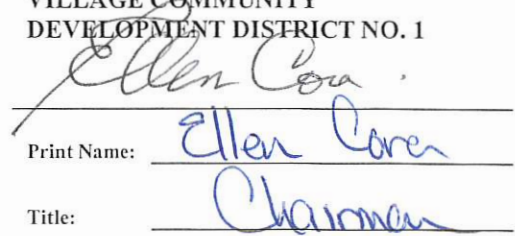 VILLAGE COMMUNITY
DEVELOPMENT DISTRICT NO. 1
Ellen Cora
Print Name: Ellen Cora
Title: Chairman